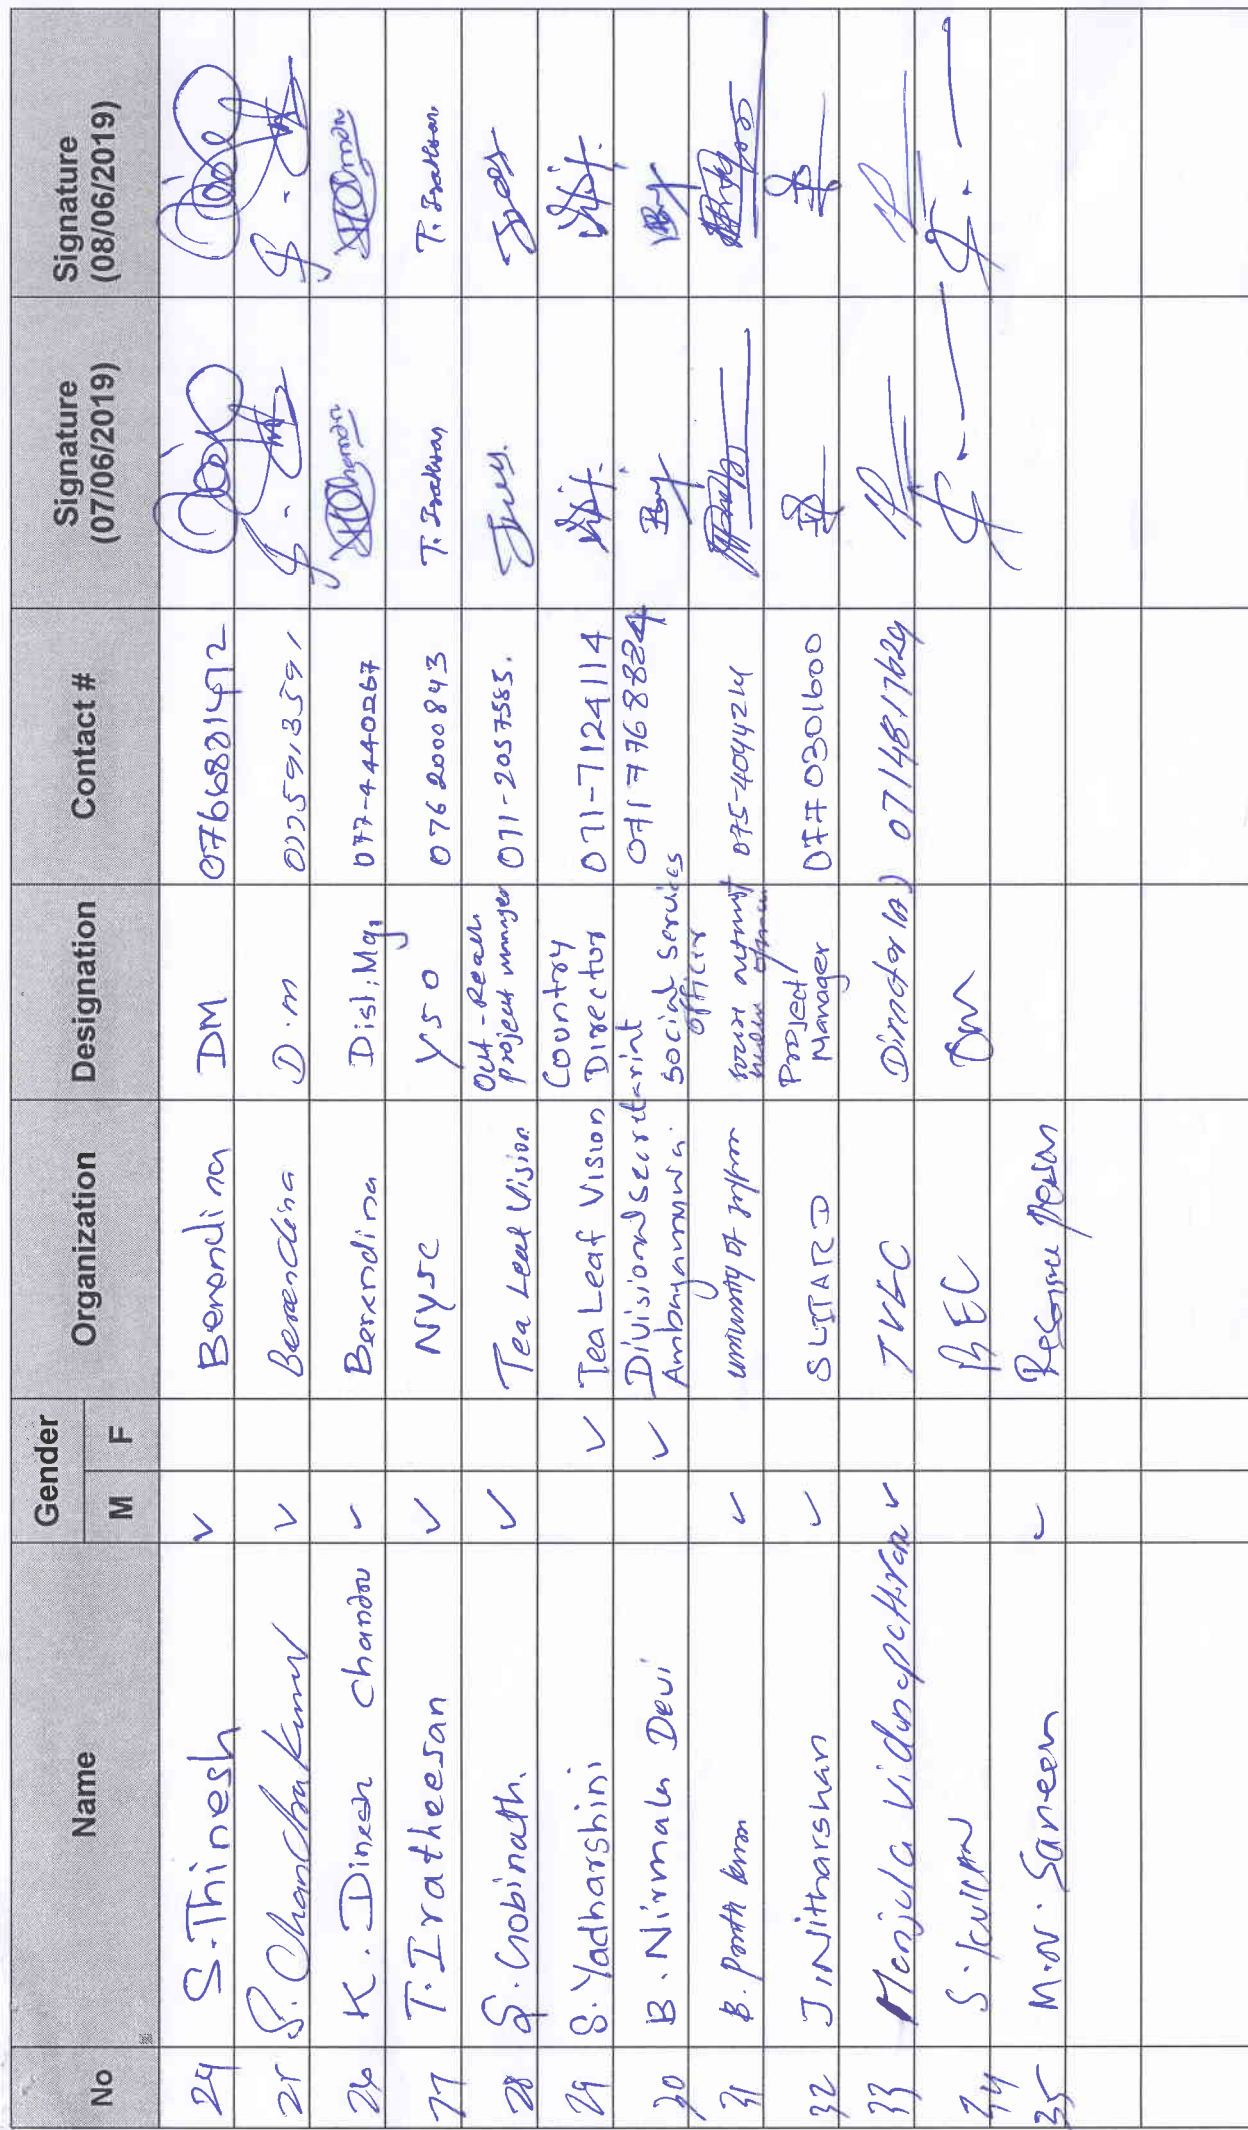 No Name Gender Organization Designation Contact # Signature (07/06/2019) Signature (08/06/2019)
M F
24 S.Thinesh ✓ Berendina DM
25 S. Chandrakumar ✓ Berendina D.m
26 K. Dinesh Chandru ✓ Berendina Dist; Mg, 077-4440267
27 T. Iratheesan ✓ NYSC YSO 0762000843 T. Iratheesan T. Iratheesan
28 S. Gobinath. ✓ Tea Leaf Vision Out-Reach Project manager 071-2057585.
29 S. Yadharshini ✓ Tea Leaf Vision Country Director 071-7124114
30 B. Nirmala Devi ✓ Divisional Secretariat Ambagamuwa. Social Services Officer
31 B. ✓ university of 075-4044214
32 J. Nitharshan ✓ SLITARD Project Manager 0770301600
33 Manjula Vidanapathirana ✓ TVEC Director 0714817629
34 S.
35 M.N. Saneen ✓ Resource Person